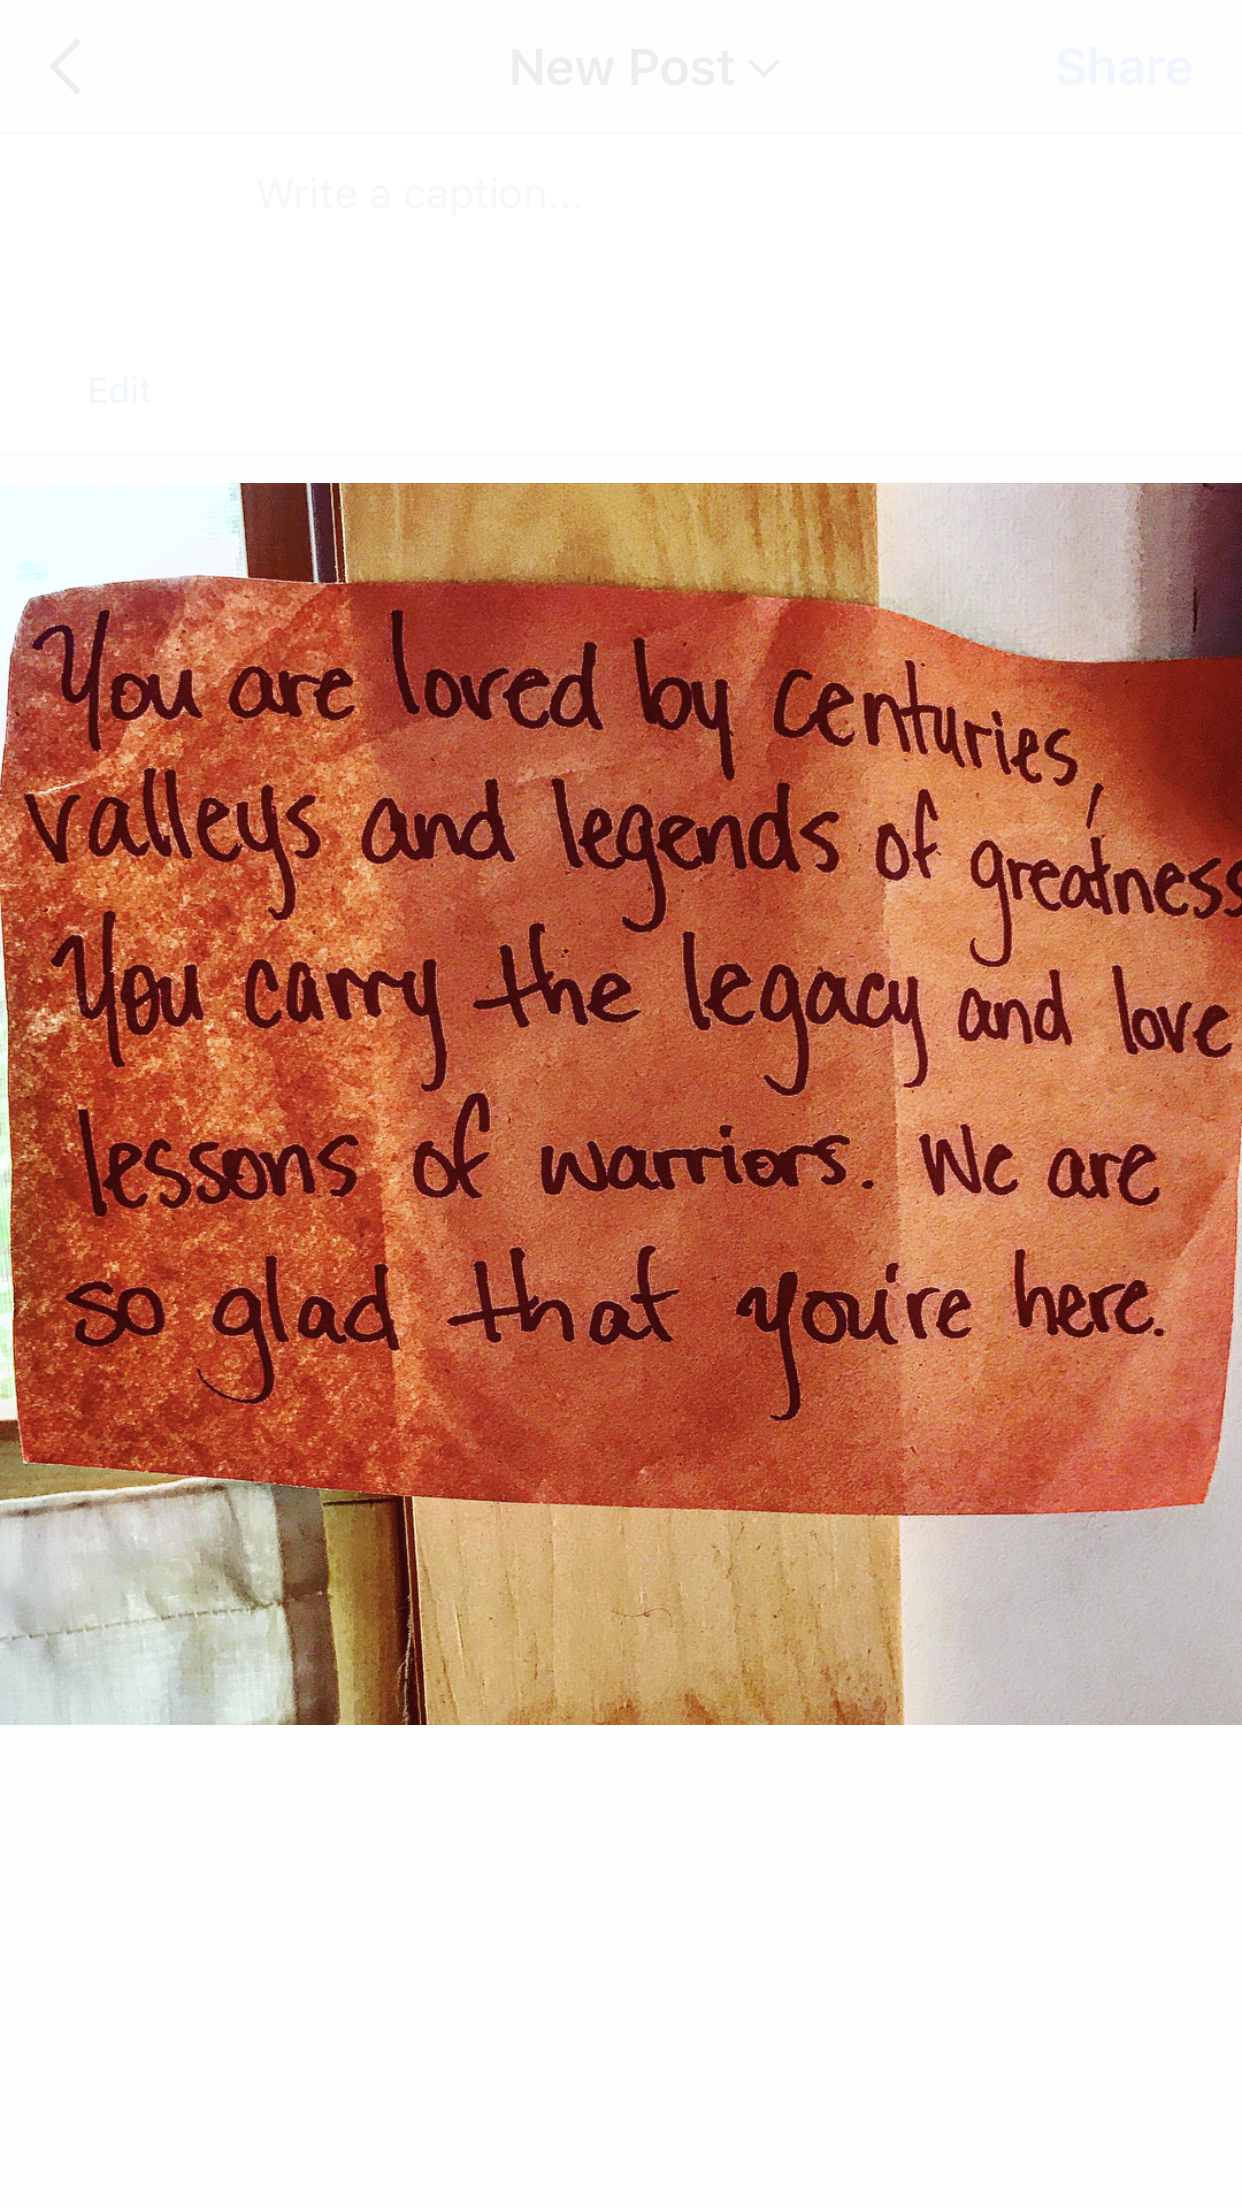 New Post
Share
Write a caption...
Edit
You are loved by centuries,
valleys and legends of greatness
You carry the legacy and love
lessons of warriors. We are
so glad that you're here.